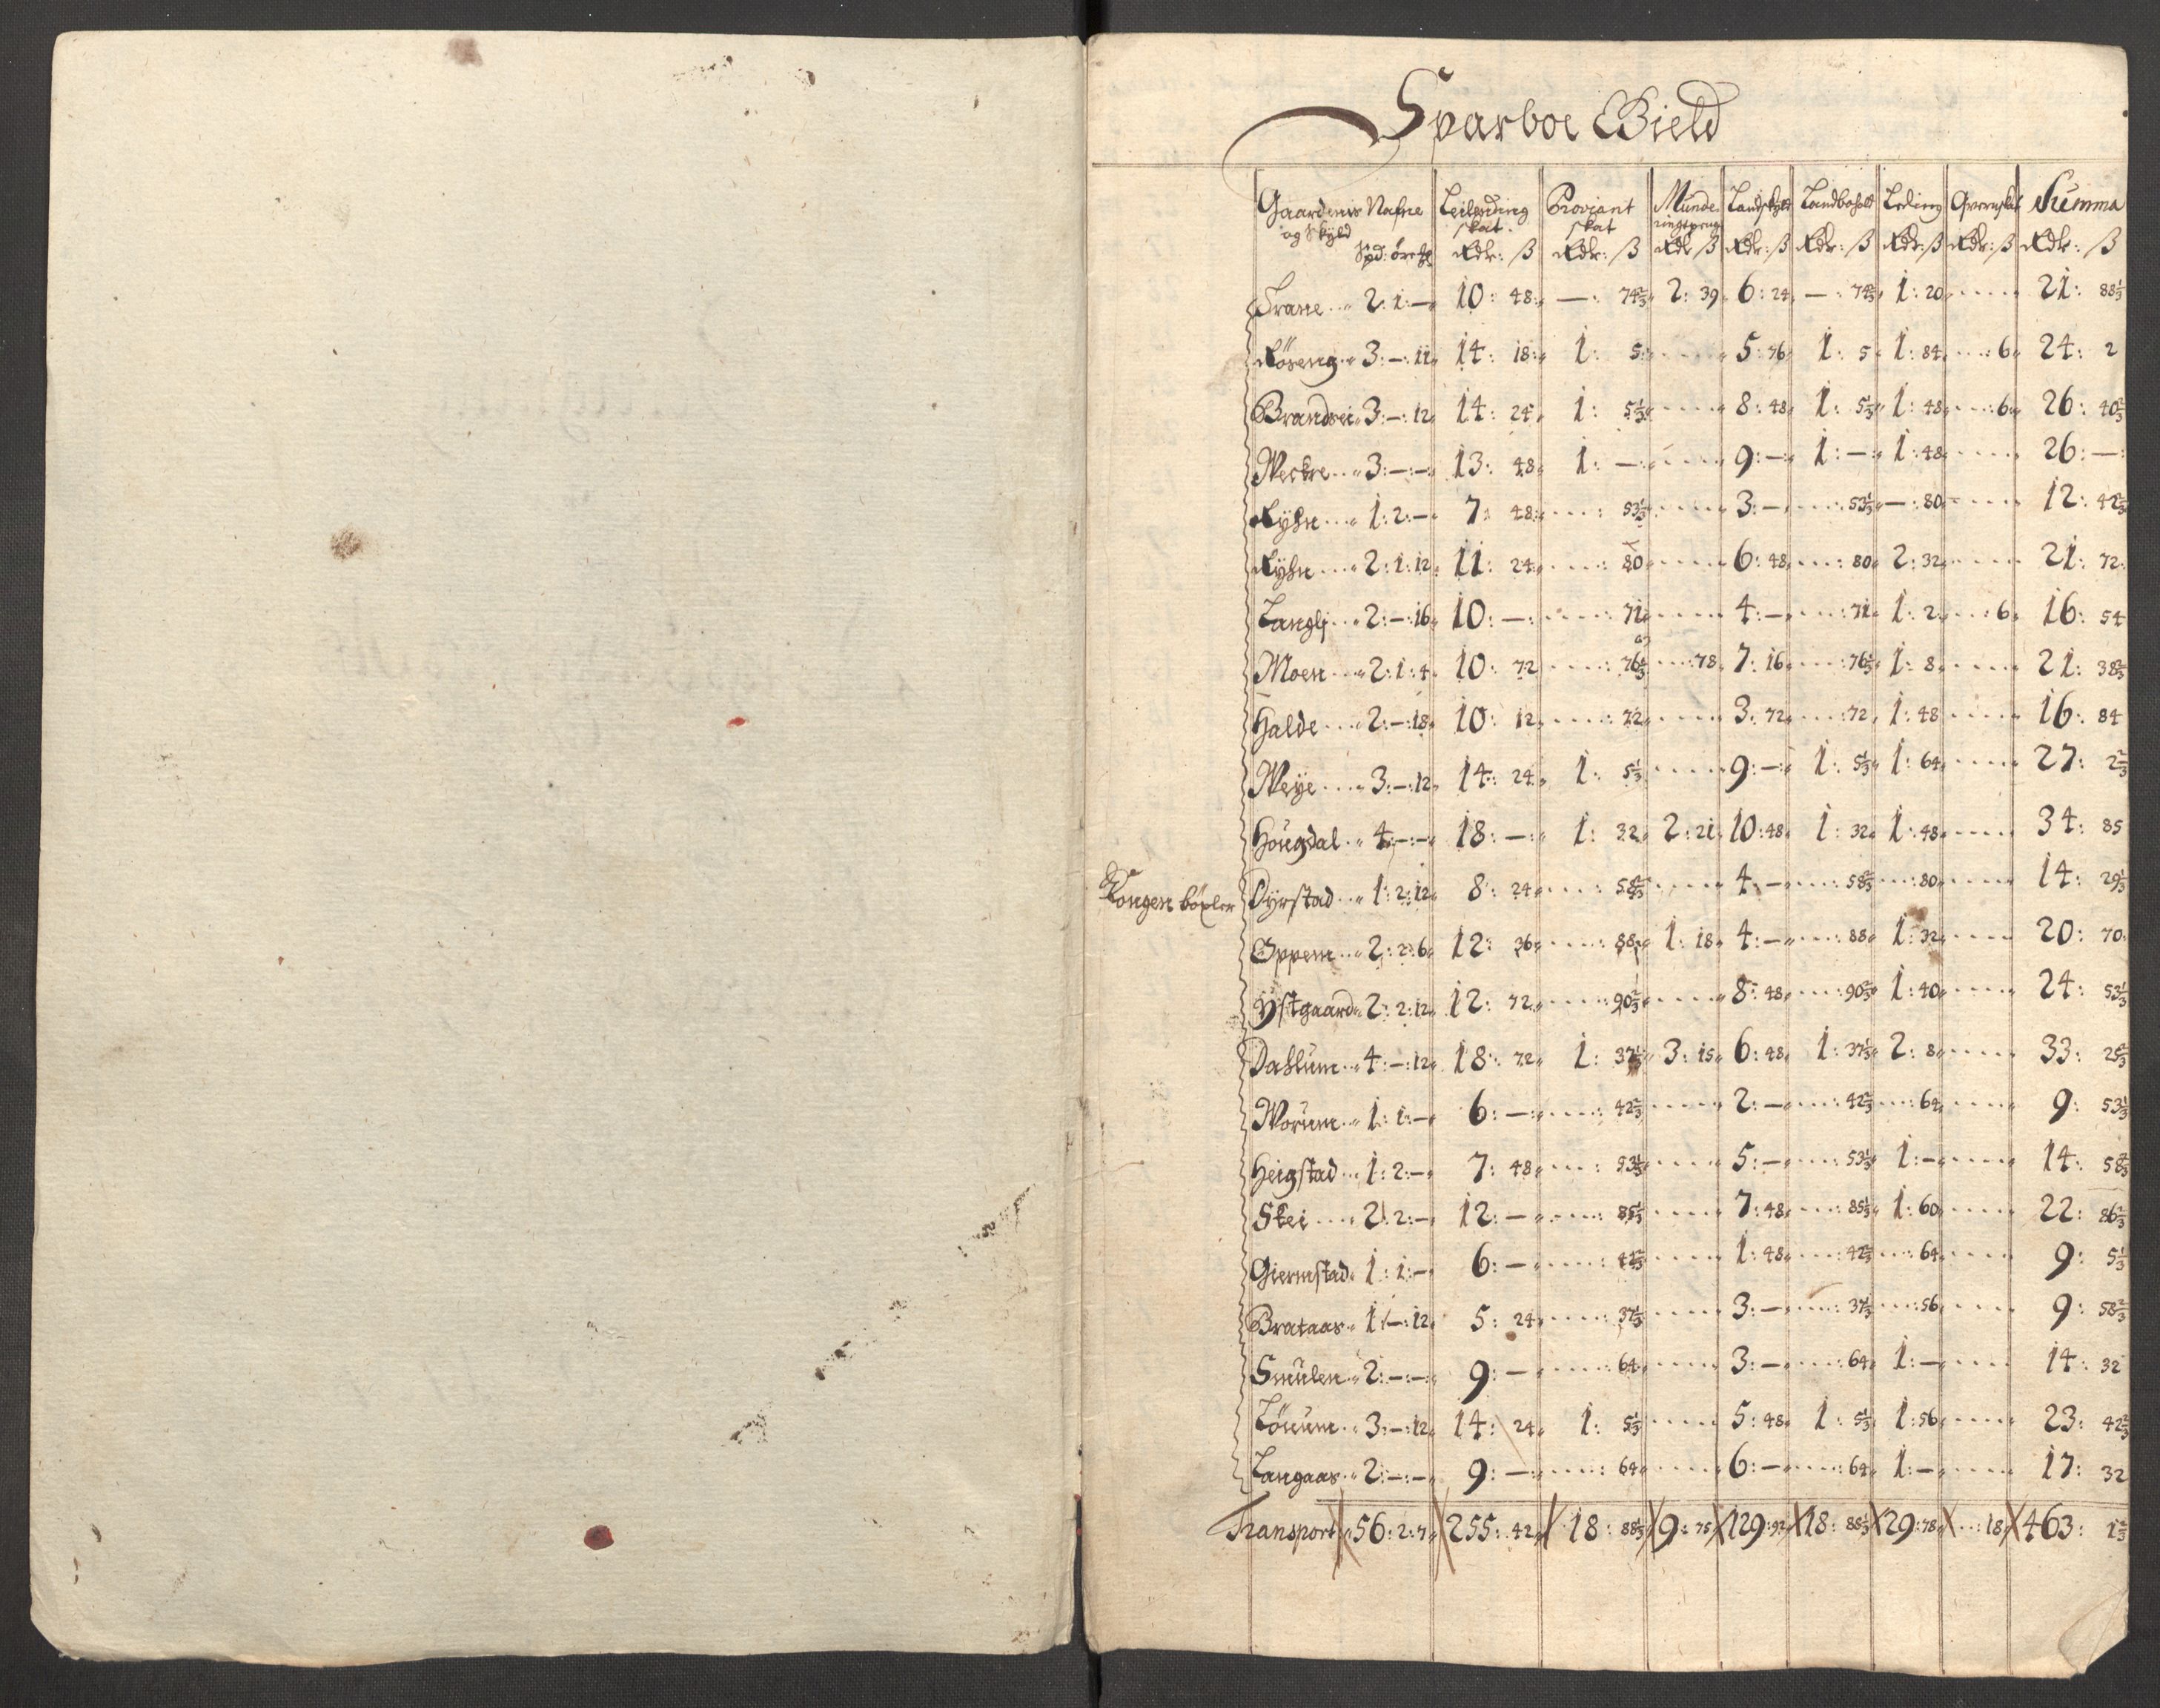 Sparboe Gield
Gaardenes Nafne og Skyld Spd: öre | Leilending skat Rdr: ß | Proviant skat Rdr: ß | Munderings penge Rdr ß | Landskyld Rdr: ß | Landbohold Rdr: ß | Leding Rdr: ß | Qvernskat Rdr: ß | Summa Rdr: ß
Trane 2: 1: — 10: 48 —: 74 2/3 2: 39 6: 24 —: 74 2/3 1: 20 21: 88 1/3
Röseng 3: —: 11 14: 18 1: 5 5: 76 1: 5 1: 84 6 24: 2
Brandsei 3: —: 12 14: 24 1: 5 1/3 8: 48 1: 5 1/3 1: 48 6 26: 40 2/3
Weckre 3: —: — 13: 48 1: — 9: — 1: — 1: 48 26: —
Rysn 1: 2: — 7: 48 53 1/3 3: — 53 1/3 —: 80 12: 42 2/3
Rysn 2: 1: 12 11: 24 80 6: 48 80 2: 32 21: 72
Langlj 2: —: 16 10: — 71 4: — 71 1: 2 6 16: 54
Moen 2: 1: 4 10: 72 76 1/3 78 7: 16 76 1/3 1: 8 21: 38 2/3
Halde 2: —: 18 10: 12 72 3: 72 72 1: 48 16: 84
Weye 3: —: 12 14: 24 1: 5 1/3 9: — 1: 5 1/3 1: 64 27: 2 2/3
Hougdal 4: —: — 18: — 1: 32 2: 21 10: 48 1: 32 1: 48 34: 85
Kongen böxler Dyrstad 1: 2: 12 8: 24 58 2/3 4: — 58 2/3 80 14: 29 1/3
Oppem 2: 2: 6 12: 36 88 1: 18 4: — 88 1: 32 20: 70
Ystgaard 2: 2: 12 12: 72 90 2/3 8: 48 90 2/3 1: 40 24: 53 1/3
Dahlum 4: —: 12 18: 72 1: 37 1/3 3: 15 6: 48 1: 37 1/3 2: 8 33: 25 2/3
Worum 1: 1: — 6: — 42 2/3 2: — 42 2/3 64 9: 53 1/3
Heigstad 1: 2: — 7: 48 53 1/3 5: — 53 1/3 1: — 14: 58 2/3
Skei 2: 2: — 12: — 85 1/3 7: 48 85 1/3 1: 60 22: 86 2/3
Giermstad 1: 1: — 6: — 42 2/3 1: 48 42 2/3 64 9: 5 1/3
Brataas 1: —: 12 5: 24 37 1/3 3: — 37 1/3 56 9: 58 2/3
Smulen 2: —: — 9: — 64 3: — 64 1: — 14: 32
Löium 3: —: 12 14: 24 1: 5 1/3 5: 48 1: 5 1/3 1: 56 23: 42 2/3
Langaas 2: —: — 9: — 64 6: — 64 1: — 17: 32
Transport 56: 2: 7 255: 42 18: 88 1/3 9: 75 129: 92 18: 88 1/3 29: 78 18 463: 1 2/3